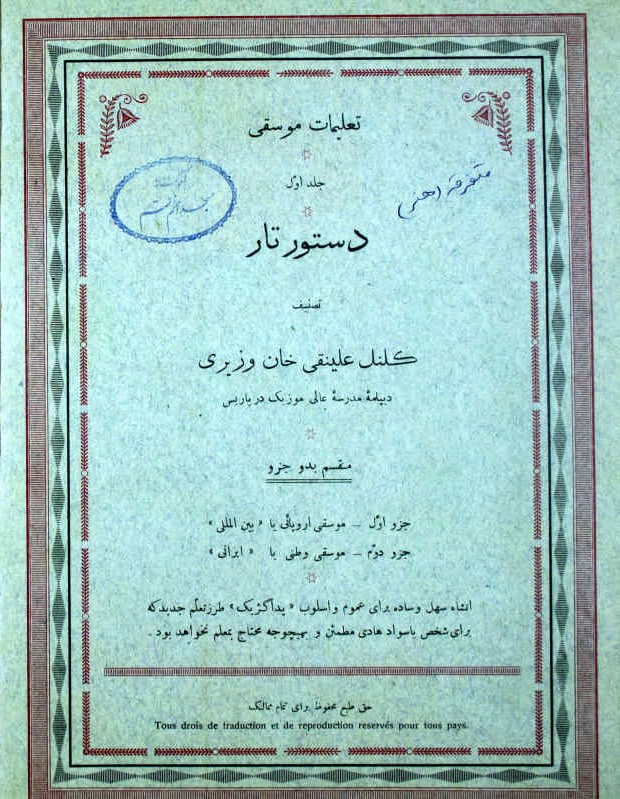 تعلیمات موسقی
جلد اوّل
متفرقه (هنر)
دستور تار
تصنیف
کلنل علینقی خان وزیری
دیپلمهٔ مدرسهٔ عالی موزیک در پاریس
منقسم بدو جزو
جزو اوّل – موسقی اروپائی یا « بین المللی »
جزو دوّم – موسقی وطنی یا « ایرانی »
انشاء سهل و ساده برای عموم و اسلوب « پداگژیک » طرز تعلّم جدید که
برای شخص باسواد هادی مطمئن و بهیچوجه محتاج بمعلم نخواهد بود .
حق طبع محفوظ برای تمام ممالک
Tous drois de traduction et de reproduction reservés pour tous pays.